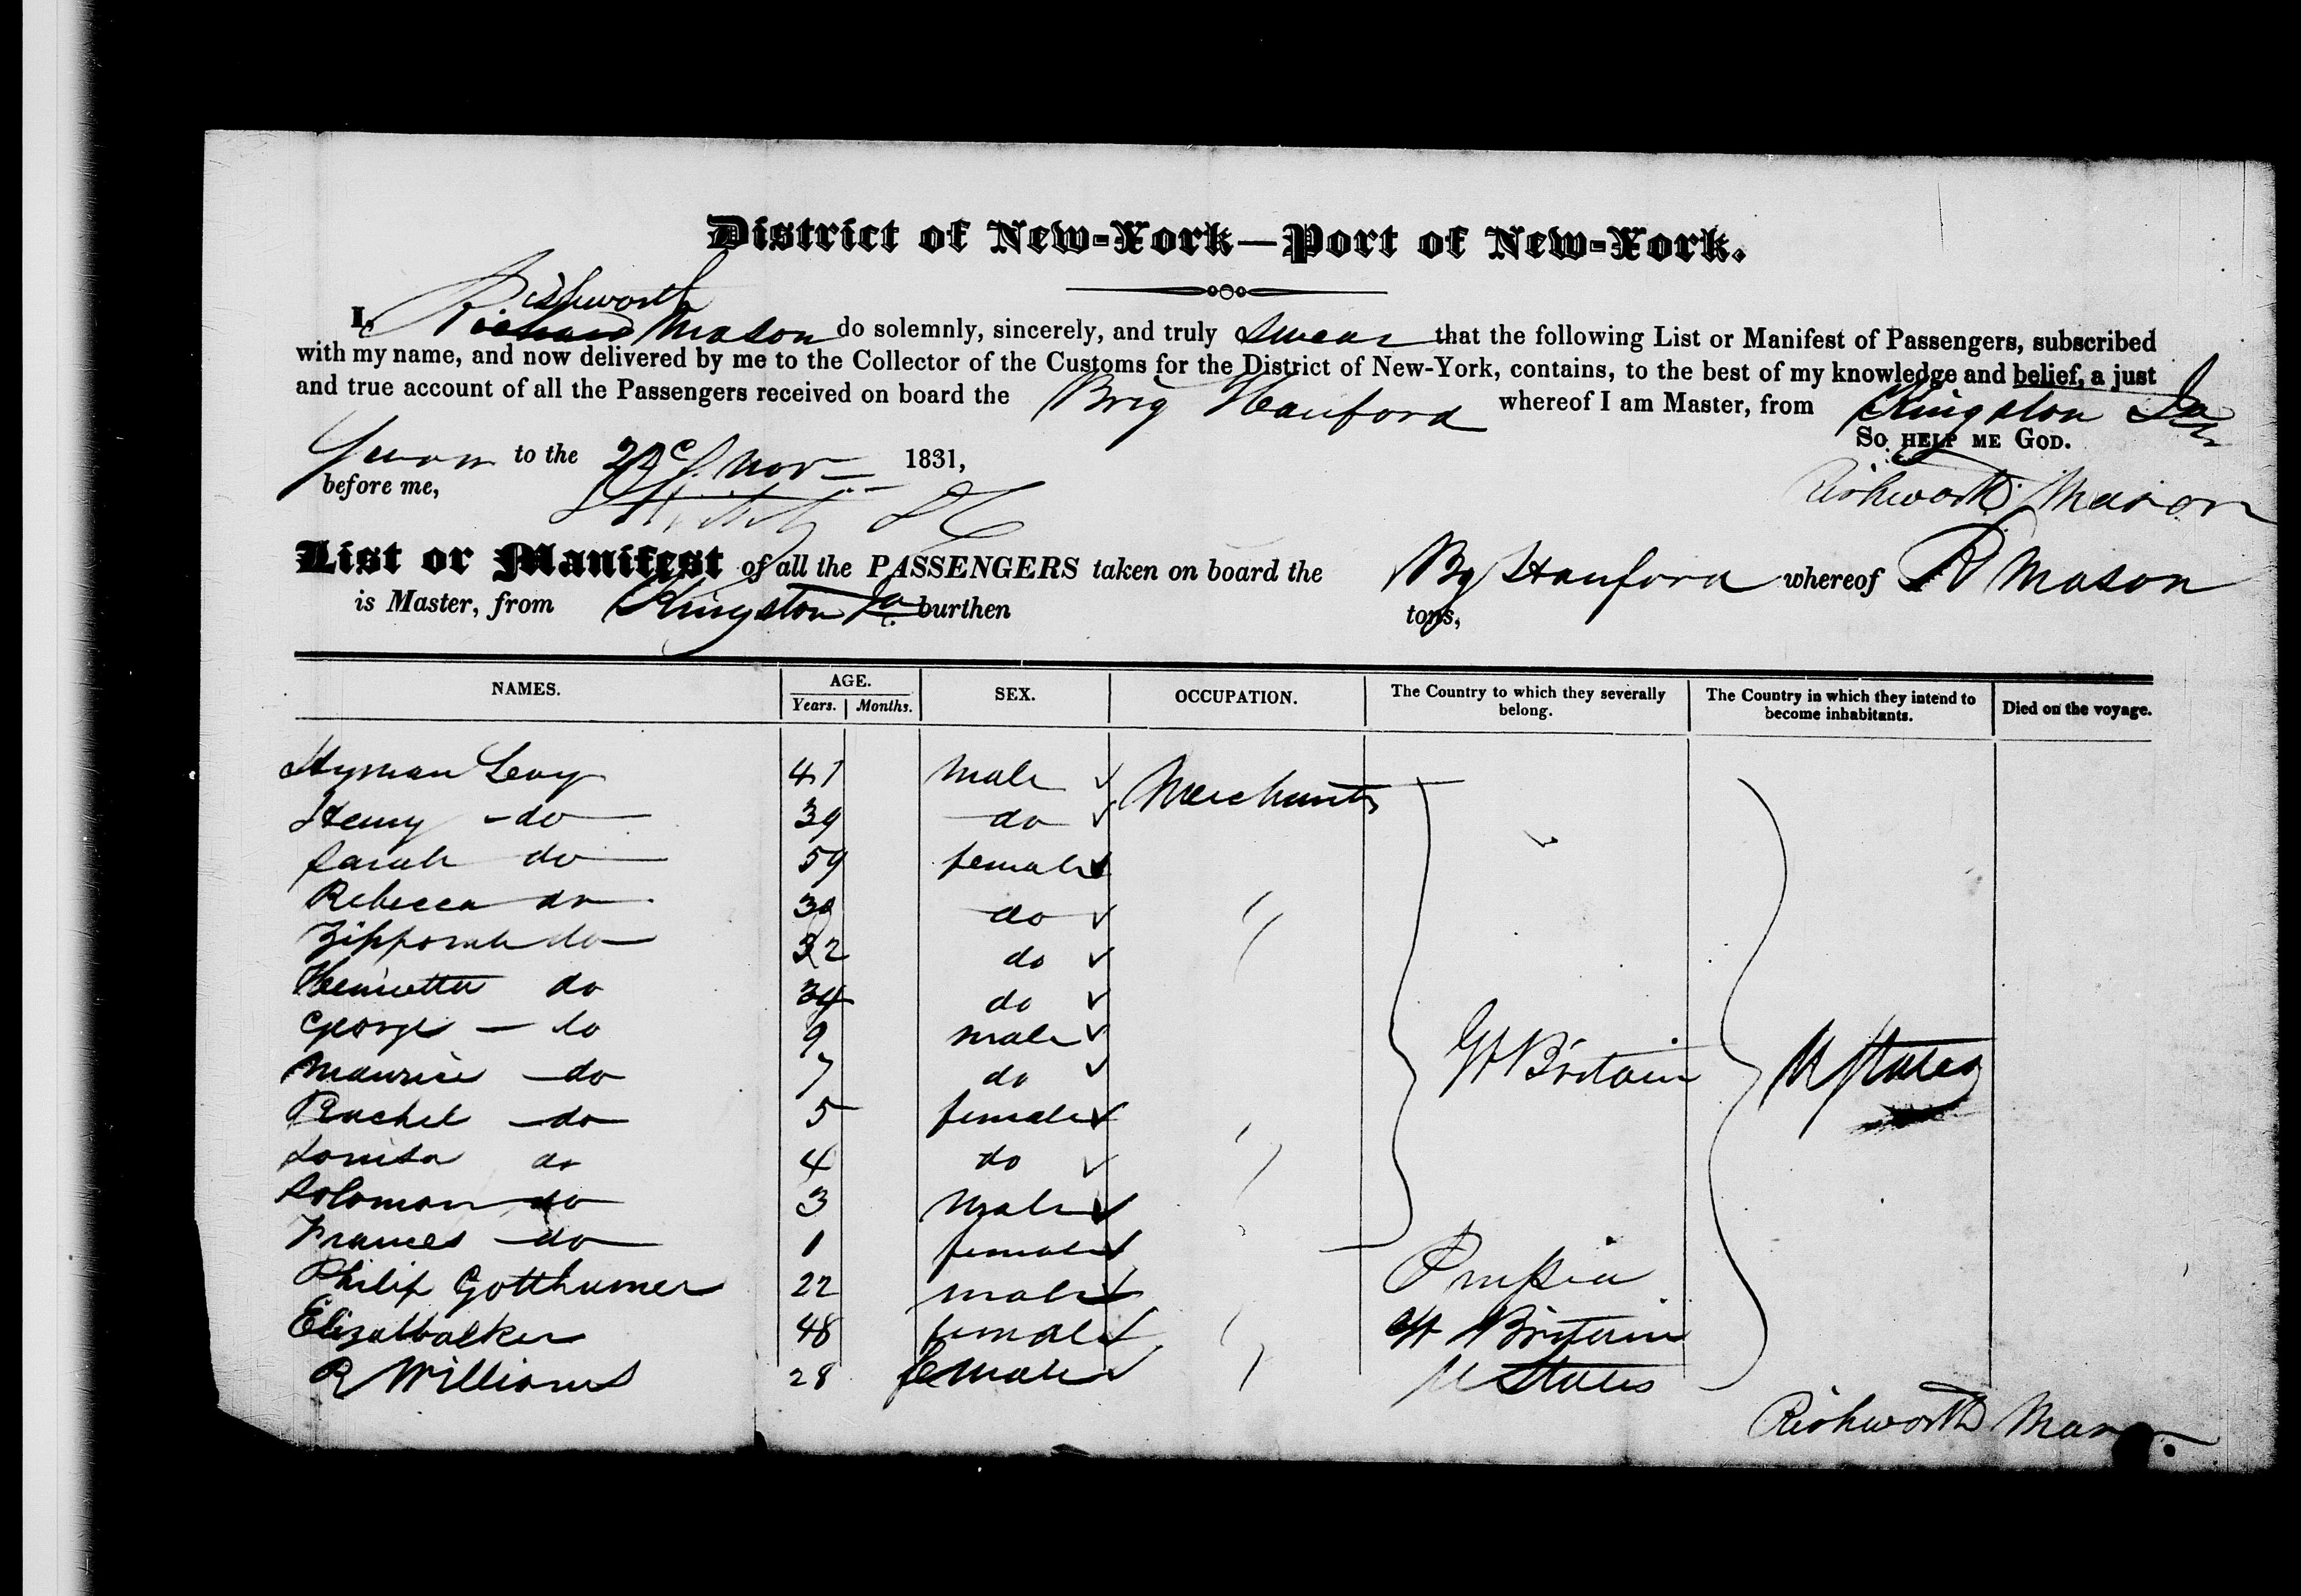 District of New-York—Port of New-York.
Rishworth
I, Richard Mason do solemnly, sincerely, and truly swear that the following List or Manifest of Passengers, subscribed
with my name, and now delivered by me to the Collector of the Customs for the District of New-York, contains, to the best of my knowledge and belief, a just
and true account of all the Passengers received on board the Brig Hanford whereof I am Master, from Kingston Ja
So help me God.
Sworn to the Nov 1831,
before me,
Rishworth Mason
List or Manifest of all the PASSENGERS taken on board the Bg Hanford whereof R Mason
is Master, from Kingston Ja burthen tons,
NAMES. AGE. SEX. OCCUPATION. The Country to which they severally belong. The Country in which they intend to become inhabitants. Died on the voyage.
Years. Months.
Hyman Levy 41 male Merchants
Henry do 39 do
Sarah do 59 female
Rebecca do do
Zipporah do 32 do
Henrietta do 34 do
George do 9 male
Maurice do 7 do Gt Britain U States
Rachel do 5 female
Louisa do 4 do
Solomon do 3 male
Frances do 1 female
Philip Gotthumer 22 male Prussia
Eliza Walker 48 female Gt Britain
R Williams 28 female U States
Rishworth Mason